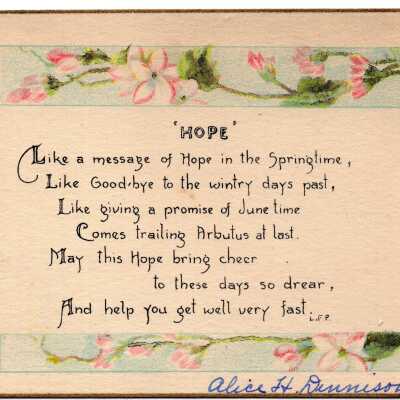 'HOPE'
Like a message of Hope in the Springtime,
Like Good-bye to the wintry days past,
Like giving a promise of June time
Comes trailing Arbutus at last.
May this Hope bring cheer
to these days so drear,
And help you get well very fast.
Alice H. Dennison